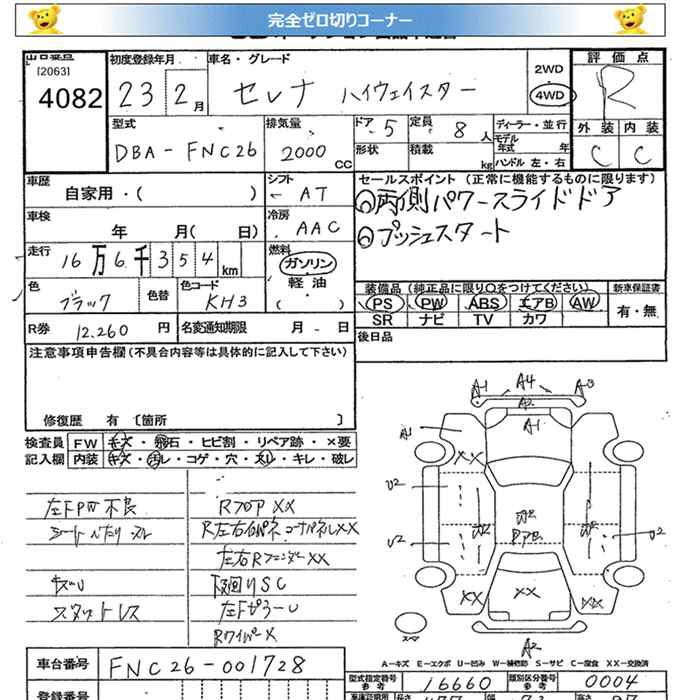 完全ゼロ切りコーナー
出品番号
[2063]
4082
初度登録年月
23 2月
車名・グレード
セレナ ハイウェイスター
2WD
4WD
評価点
R
外装 内装
C C
型式
DBA-FNC26
排気量
2000 CC
ドア
5
定員
8人
形状
積載
kg
ディーラー・並行
モデル年式 年
ハンドル 左・右
車歴
自家用・( )
シフト
AT
車検
年 月( 日)
冷房
AAC
走行
16万6千354km
燃料
ガソリン
軽油
( )
色
ブラック
色替
色コード
KH3
R券
12,260円
名変通知期限
月 - 日
セールスポイント (正常に機能するものに限ります)
◎両側パワースライドドア
◎プッシュスタート
装備品 (純正品に限り○をつけてください)
PS PW ABS エアB AW
SR ナビ TV カワ
新車保証書
有・無
後日品
注意事項申告欄(不具合内容等は具体的に記入して下さい)
修復歴 有 〔箇所 〕
検査員記入欄
FW キズ・飛石・ヒビ割・リペア跡・×要
内装 キズ・汚レ・コゲ・穴・スレ・キレ・破レ
左FPW不良
シートヘタリ スレ
スタットレス
RフロアXX
左右RフェンダーXX
下廻りSC
RワイパーX
A1 A4 A3
A2
A1
A1
XX
U2 U2
U2 U2
XX XX XX
A2
スペ
A-キズ E-エクボ U-凹み W-補修跡 S-サビ C-腐食 XX-交換済
車台番号
FNC26-001728
型式指定番号
参考
16660
類別区分番号
参考
0004
登録番号